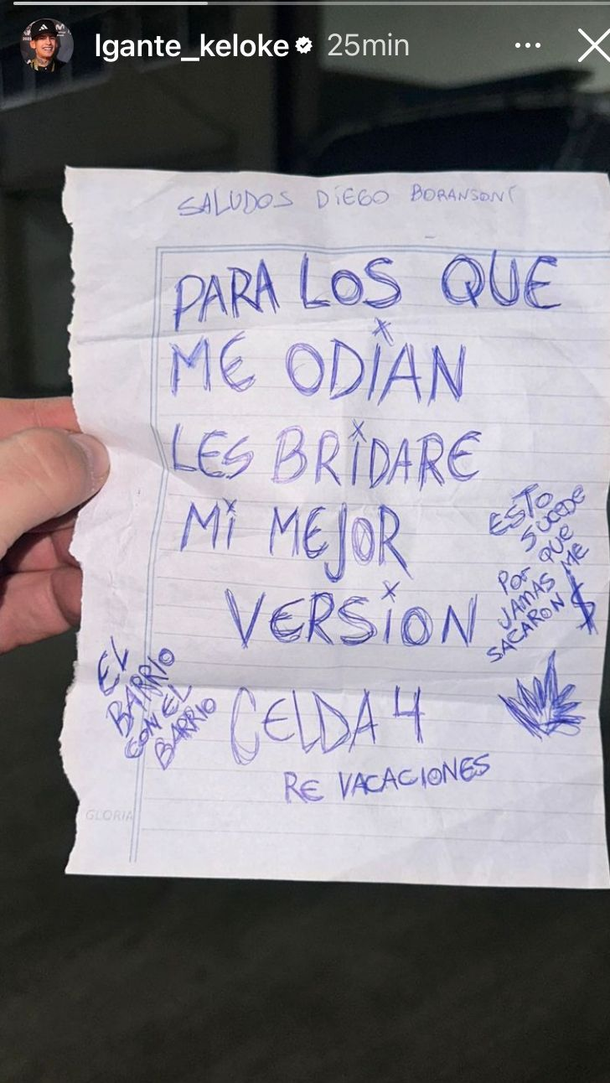 lgante_keloke 25min
SALUDOS DIEGO BORANSONI
PARA LOS QUE
ME ODIAN
LES BRIDARE
MI MEJOR
VERSION
ESTO
SUCEDE
POR QUE
JAMAS ME
SACARON $
EL
BARRIO
CON EL
BARRIO
CELDA 4
RE VACACIONES
GLORIA